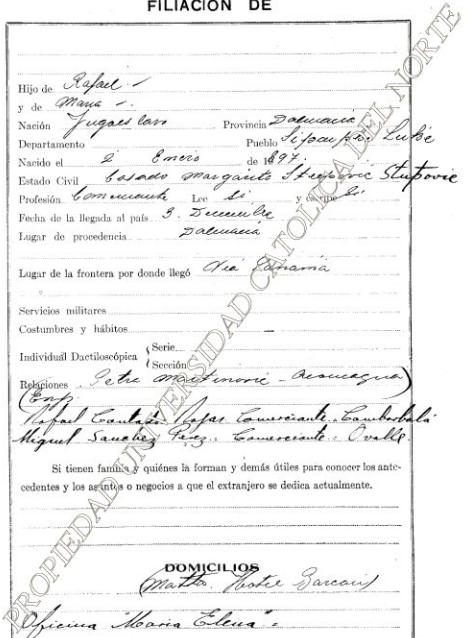 FILIACION DE
Hijo de Rafael
y de Maria
Nación Jugoeslavo Provincia Dalmacia
Departamento Pueblo
Nacido el 2 Enero de 1897.
Estado Civil Casado Margarita Stupovic
Profesión Comerciante Lee Si y escribe Si
Fecha de la llegada al país 3. Diciembre
Lugar de procedencia Dalmacia
Lugar de la frontera por donde llegó Via Panama
Servicios militares
Costumbres y hábitos
Individual Dactiloscópica Serie
Sección
Relaciones Petra Martinovic - Aconcagua
Rafael Rojas Comerciante. Combarbalá
Miguel Sanchez Perez. Comerciante. Ovalle.
Si tienen familia y quiénes la forman y demás útiles para conocer los ante-
cedentes y los asuntos o negocios a que el extranjero se dedica actualmente.
DOMICILIOS
Matta Hotel
Oficina "Maria Elena"
PROPIEDAD UNIVERSIDAD CATOLICA DEL NORTE